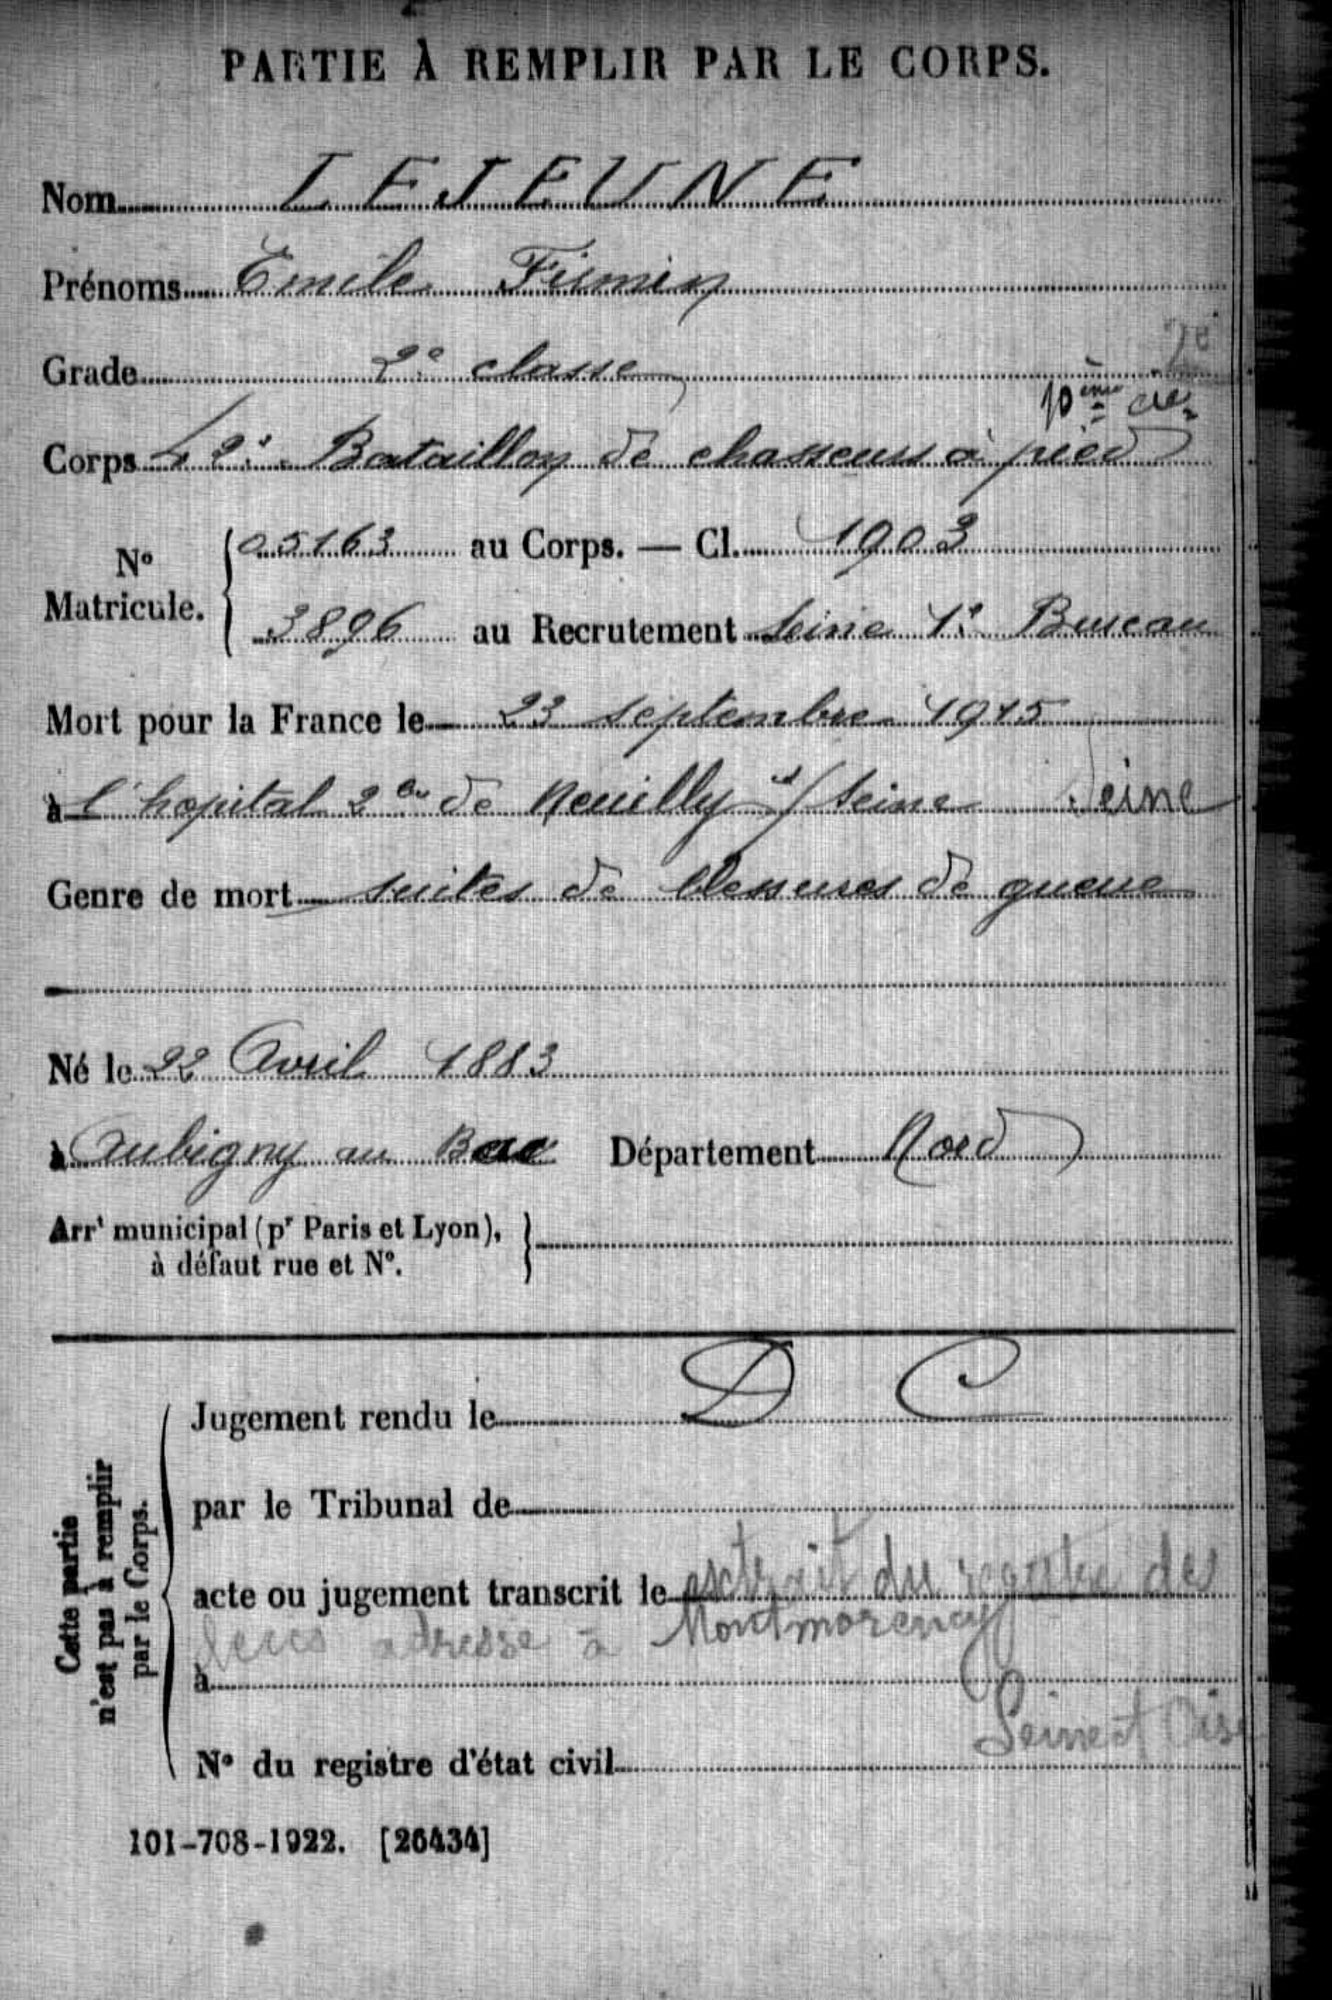 PARTIE À REMPLIR PAR LE CORPS.
Nom LEJEUNE
Prénoms Emile Firmin
Grade 2e classe
10ème Cie
Corps 42e Bataillon de chasseurs à pied
No Matricule. 05163 au Corps. — Cl. 1903
3896 au Recrutement Seine 1e Bureau
Mort pour la France le 23 septembre 1915
à l'hopital 2 de Neuilly s/ Seine Seine
Genre de mort suites de blessures de guerre
Né le 22 Avril 1883
à Aubigny au Bac Département Nord
Arrt municipal (pr Paris et Lyon),
à défaut rue et No.
Cette partie
n'est pas à remplir
par le Corps.
D C
Jugement rendu le
par le Tribunal de
acte ou jugement transcrit le extrait du registre des
adresse à Montmorency
à
Seine et Oise
No du registre d'état civil
101-708-1922. [26434]